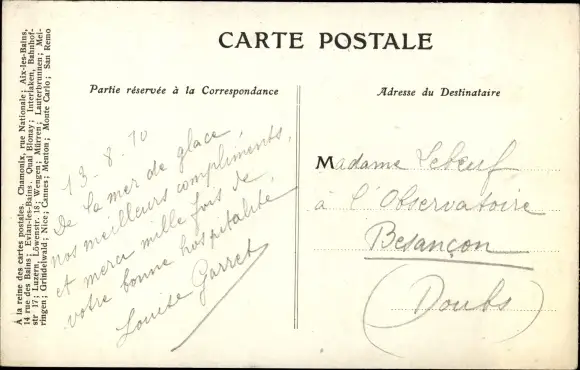 CARTE POSTALE
Partie réservée à la Correspondance
Adresse du Destinataire
A la reine des cartes postales. Chamonix, rue Nationale; Aix-les-Bains,
14 rue des Bains; Evian-les-Bains, Quai Blonay; Interlaken, Bahnhof-
str 17; Luzern, Löwenstr. 18; Wengen; Mürren; Lauterbrunnen; Mei-
ringen; Grindelwald; Nice; Cannes; Menton; Monte Carlo; San Remo
13-8.10
De la mer de glace,
nos meilleurs compliments,
et merci mille fois de
votre bonne hospitalité
Louise Garret
Madame Lebeuf
à l'Observatoire
Besançon
(Doubs)